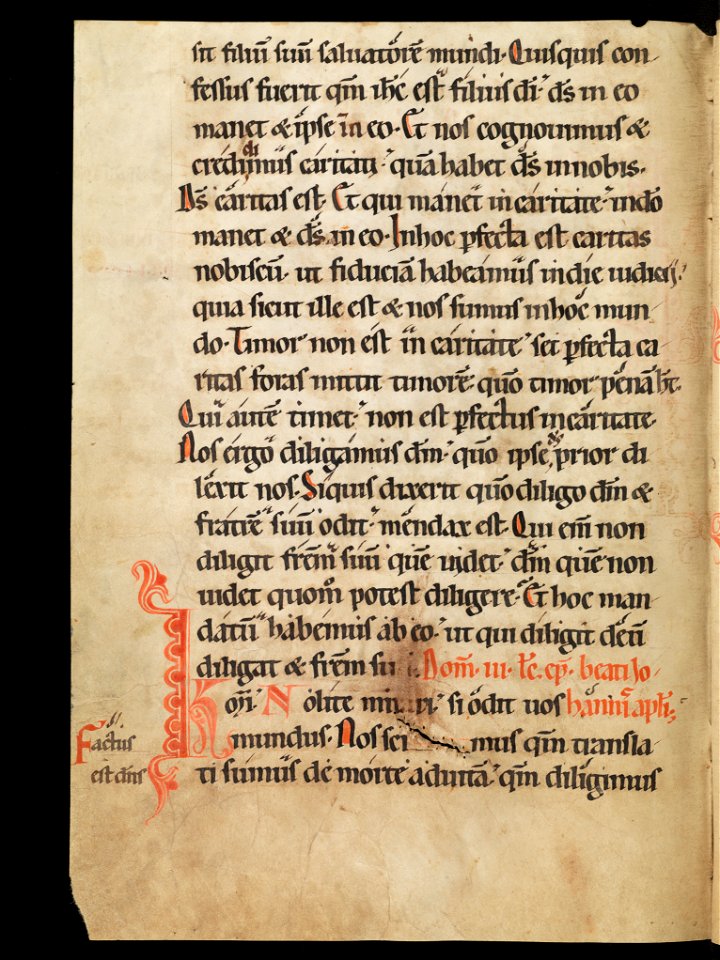 sit filiū suū saluatorē mundi. Quisquis con
fessus fuerit qm̄ ih̄c est filius dī. ds̄ in eo
manet & ipse in eo. Et nos cognouimus &
credidimus caritati. quā habet ds̄ in nobis.
Ds̄ caritas est. Et qui manet in caritate. in dō
manet & ds̄ in eo. In hoc ꝑfecta est caritas
nobiscū. ut fiduciā habeamus in die iudicij.
quia sicut ille est & nos sumus in hoc mun
do. Timor non est in caritate. set ꝑfecta ca
ritas foras mittit timorē. quō timor penā ħt.
Qui autē timet. non est ꝑfectus in caritate.
Nos ergo diligamus dm̄. quō ipse prior di
lexit nos. Siquis dixerit quō diligo dm̄ &
fratrē suū odit. mendax est. Qui em̄ non
diligit frēm suū quē uidet. dm̄ quē non
uidet quom̄ potest diligere. Et hoc man
datū habemus ab eo. ut qui diligit deū
diligat & frēm su Dom̄. iii. łc. ep̄. beati Jo
Nolite mirari si odit uos hannis apłi
mundus. Nos sci mus qm̄ transla
Factus
est dn̄s
ti sumus de morte ad uitā. qm̄ diligimus